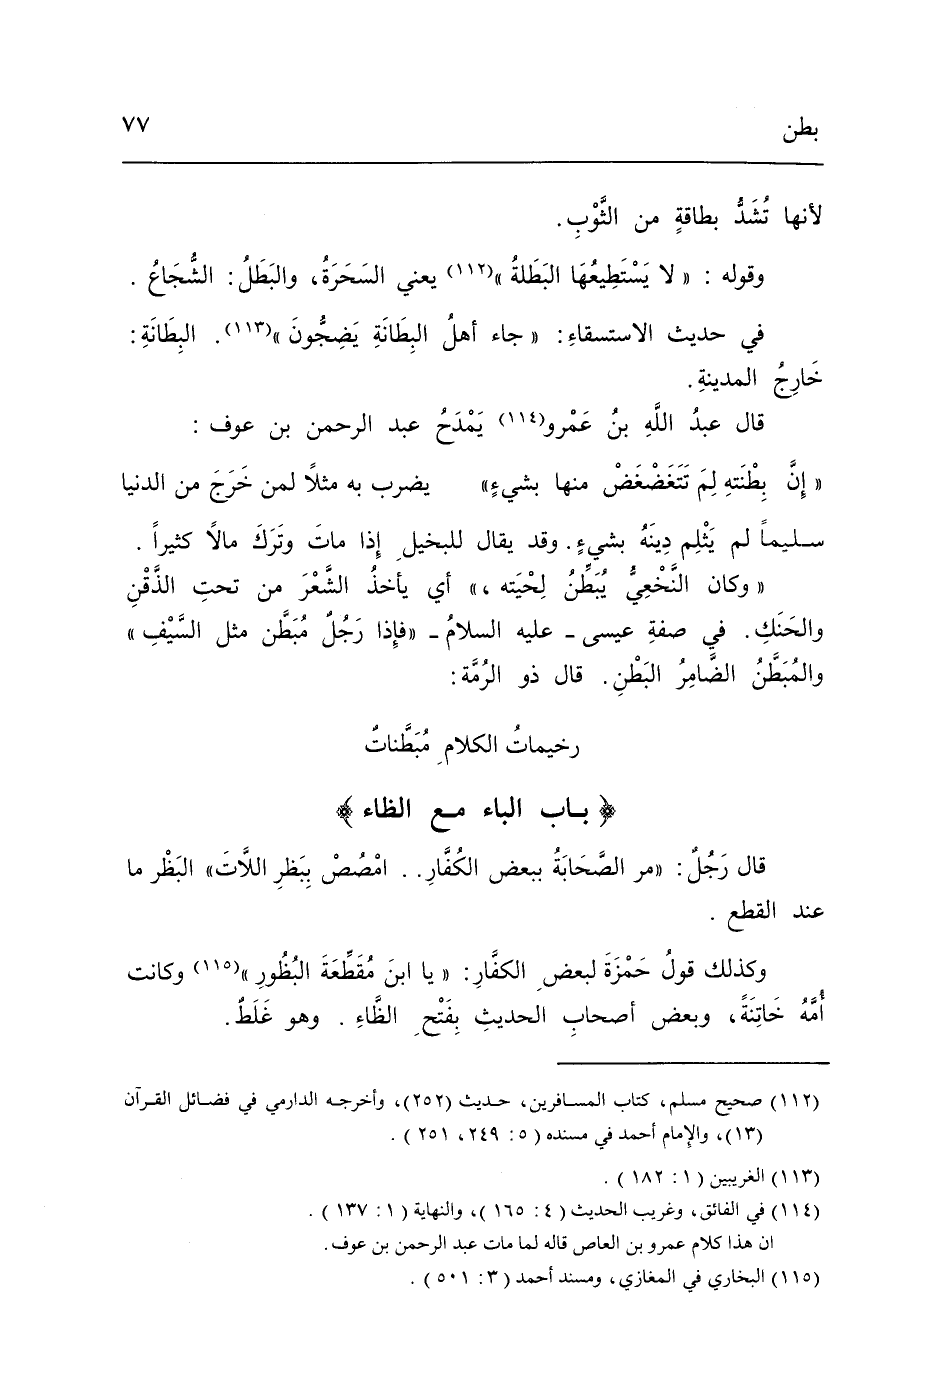 بطن ٧٧
لأنها تُشَدُّ بطاقةٍ من الثَّوْبِ .
وقوله : « لا يَسْتَطِيعُهَا البَطَلةُ »(١١٢) يعني السَحَرَةُ، والبَطَلُ : الشُّجَاعُ .
في حديث الاستسقاءِ : « جاء أهلُ البِطَانَةِ يَضِجُّونَ »(١١٣). البِطَانَةِ :
خَارِجُ المدينةِ .
قال عبدُ اللَّهِ بنُ عَمْرو(١١٤) يَمْدَحُ عبد الرحمن بن عوف :
« إنَّ بِطْنَتهِ لِمَ تَتَغَضْغَضْ منها بشيءٍ» يضرب به مثلاً لمن خَرَجَ من الدنيا
سليماً لم يَثْلِم دِينَهُ بشيءٍ . وقد يقال للبخيلِ إذا ماتَ وتَرَكَ مالاً كثيراً .
« وكان النَّخْعِيُّ يُبَطِّنُ لِحْيَته ،» أي يأخذُ الشَّعْرَ من تحتِ الذَّقْنِ
والحَنَكِ . في صفةِ عيسى ـ عليه السلامُ ـ «فإذا رَجُلٌ مُبَطَّن مثل السَّيْفِ »
والمُبَطَّنُ الضَّامِرُ البَطْنِ . قال ذو الرُمَّة :
رخيماتُ الكلامِ مُبَطَّناتٌ
﴿ بـاب الباء مـع الظاء ﴾
قال رَجُلٌ : «مر الصَّحَابَةُ ببعض الكُفَّارِ . . امْصُصْ بِبَظرِ اللاَّتَ» البَظْر ما
عند القطع .
وكذلك قولُ حَمْزَةَ لبعضِ الكفَّارِ : « يا ابنَ مُقَطِّعَةَ البُظُورِ »(١١٥) وكانت
أُمَّهُ خَاتِنَةً، وبعض أصحابِ الحديثِ بِفَتْحِ الظَّاءِ . وهو غَلَطٌ .
(١١٢) صحيح مسلم، كتاب المسافرين، حديث (٢٥٢)، وأخرجه الدارمي في فضائل القرآن
(١٣)، والإمام أحمد في مسنده ( ٥ : ٢٤٩، ٢٥١ ) .
(١١٣) الغريبين ( ١ : ١٨٢ ) .
(١١٤) في الفائق، وغريب الحديث ( ٤ : ١٦٥ )، والنهاية ( ١ : ١٣٧ ) .
ان هذا كلام عمرو بن العاص قاله لما مات عبد الرحمن بن عوف .
(١١٥) البخاري في المغازي، ومسند أحمد ( ٣ : ٥٠١ ) .